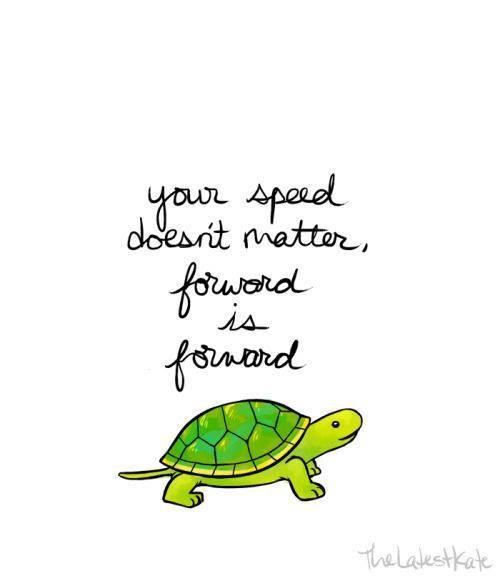 your speed
doesn't matter,
forward
is
forward
TheLatestKate